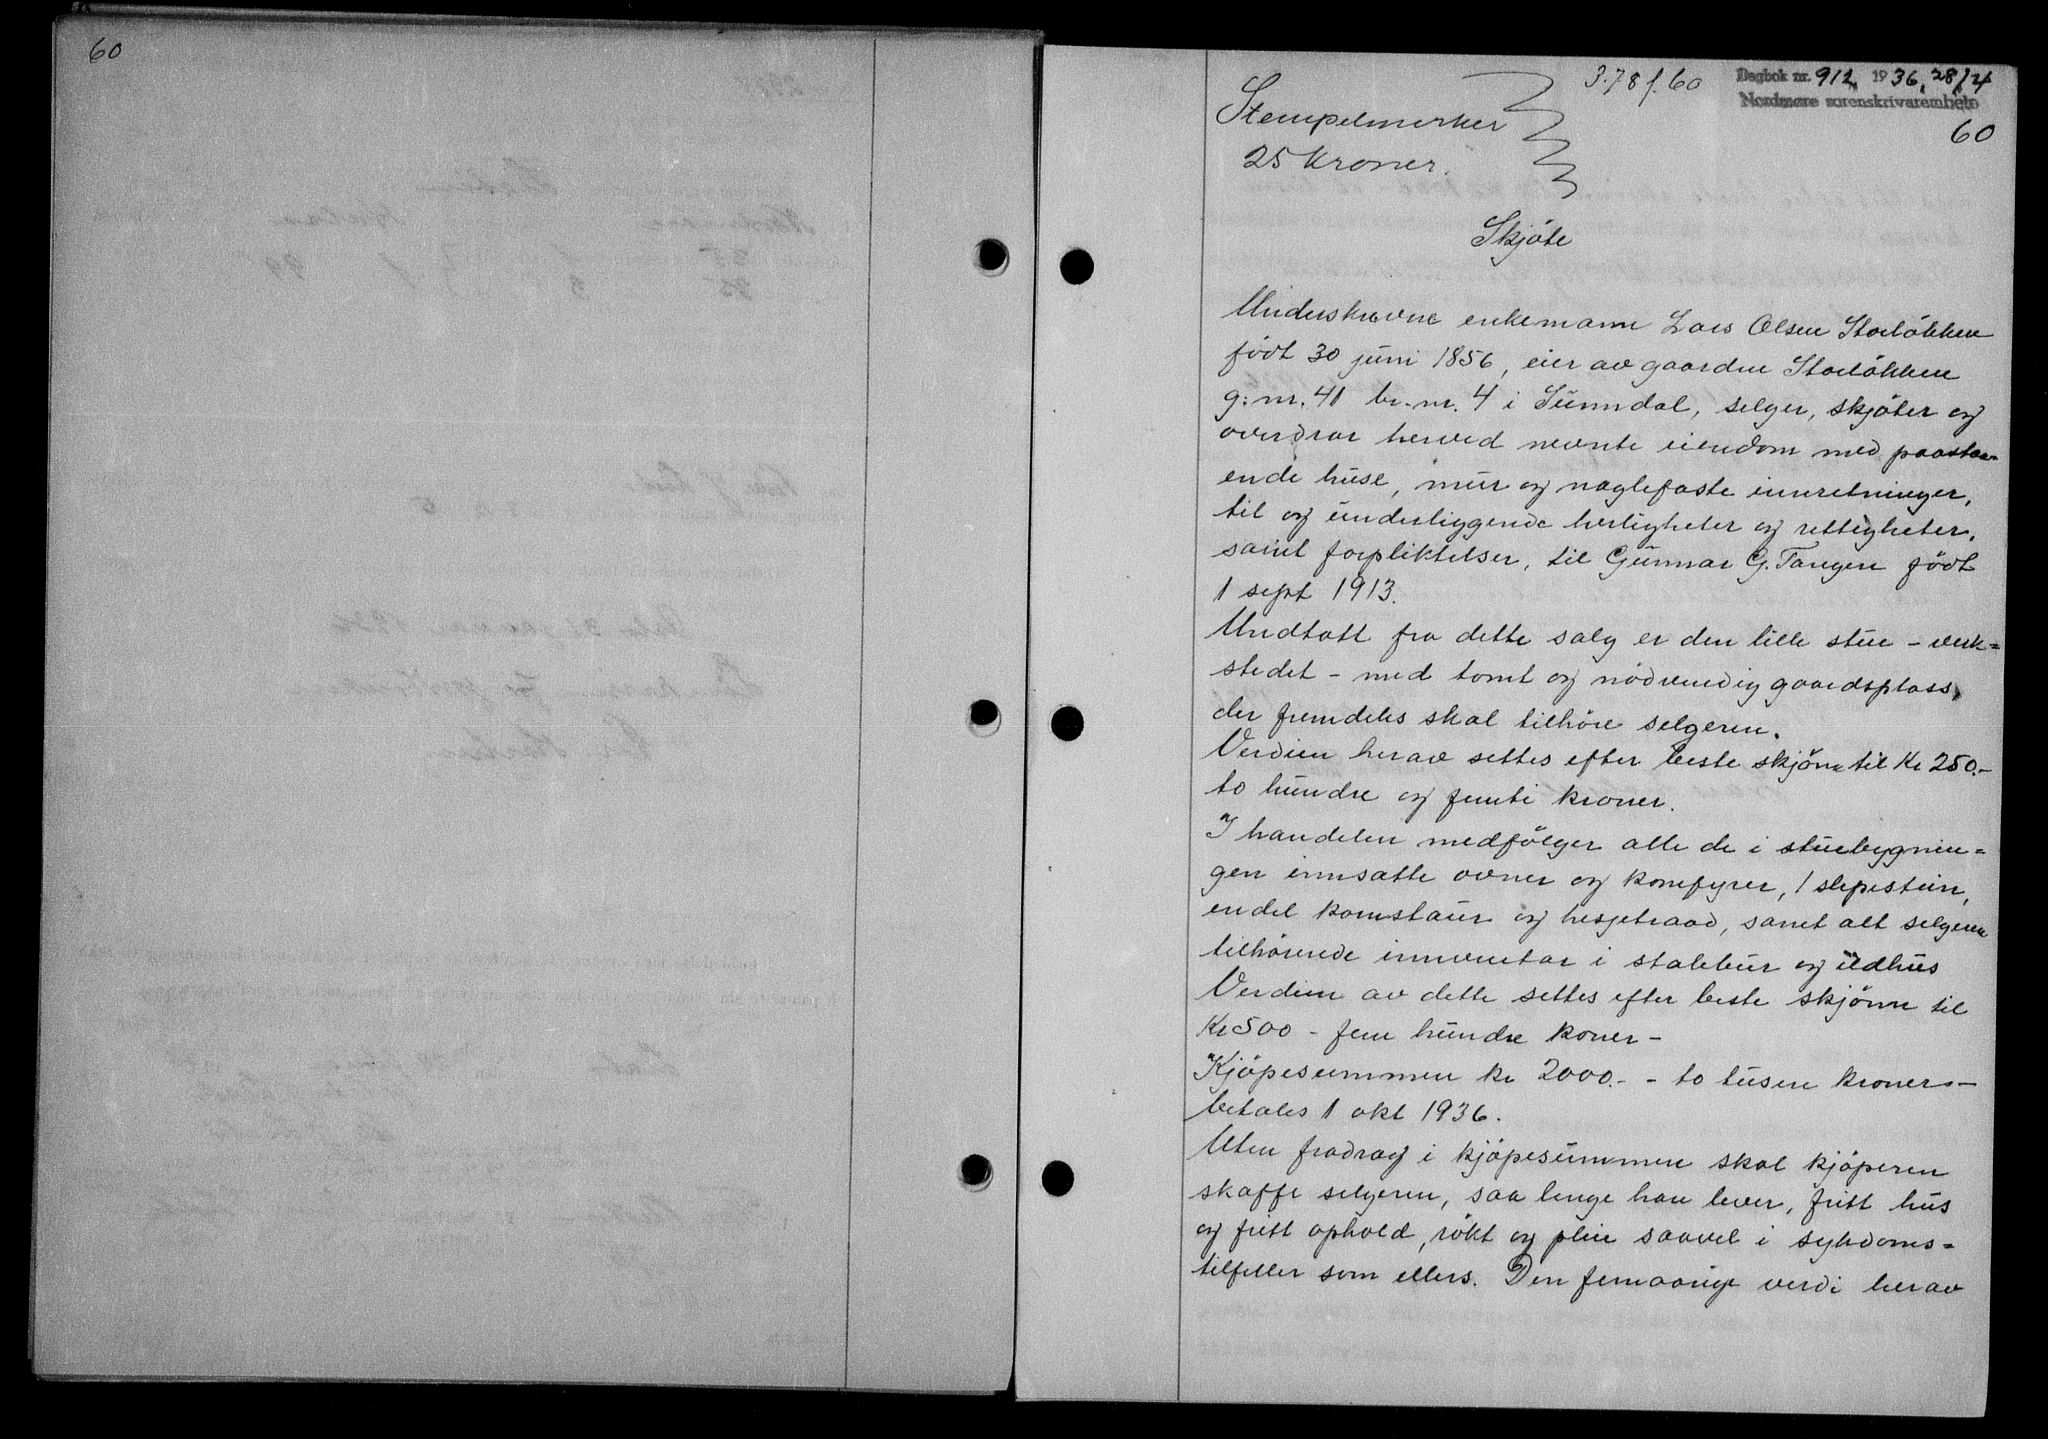 60
3.78 f. 60
Dagbok nr. 912 1936, 28/4
Nordmøre sorenskrivarembete
60
Stempelmerker
25 kroner.
Skjöte
Underskrevne enkemann Lars Olsen Storlökken
födt 30 juni 1856, eier av gaarden Storlökken
g: nr. 41 br. nr. 4 i Sunndal, selger, skjöter og
overdrar herved nevnte eiendom med paastaa-
ende huse, mur og naglefaste innretninger,
til og underliggende herligheter og rettigheter,
samt forpliktelser, til Gunnar G. Tangen födt
1 sept 1913.
Undtatt fra dette salg er den lille stue - verk=
stedet - med tomt og nödvendig gaardsplass,
der fremdeles skal tilhöre selgeren.
Verdien herav settes efter beste skjönn til Kr 250.-
to hundre og femti kroner.
I handelen medfölger alle de i stuebygnin=
gen innsatte ovner og komfyrer, 1 slipestein,
endel kornstaur og hesjetraad, samt alt selgeren
tilhörende innventar i stabbur og ildhus
Verdien av dette settes efter beste skjönn til
Kr 500 - fem hundre koner -
Kjöpesummen kr 2000.- - to tusen kroner -
betales 1 okt 1936.
Uten fradrag i kjöpesummen skal kjöperen
skaffe selgeren, saa lenge han lever, fritt hus
og fritt ophold, rökt og pleie saavel i sykdoms=
tilfeller som ellers. Den femaarige verdi herav